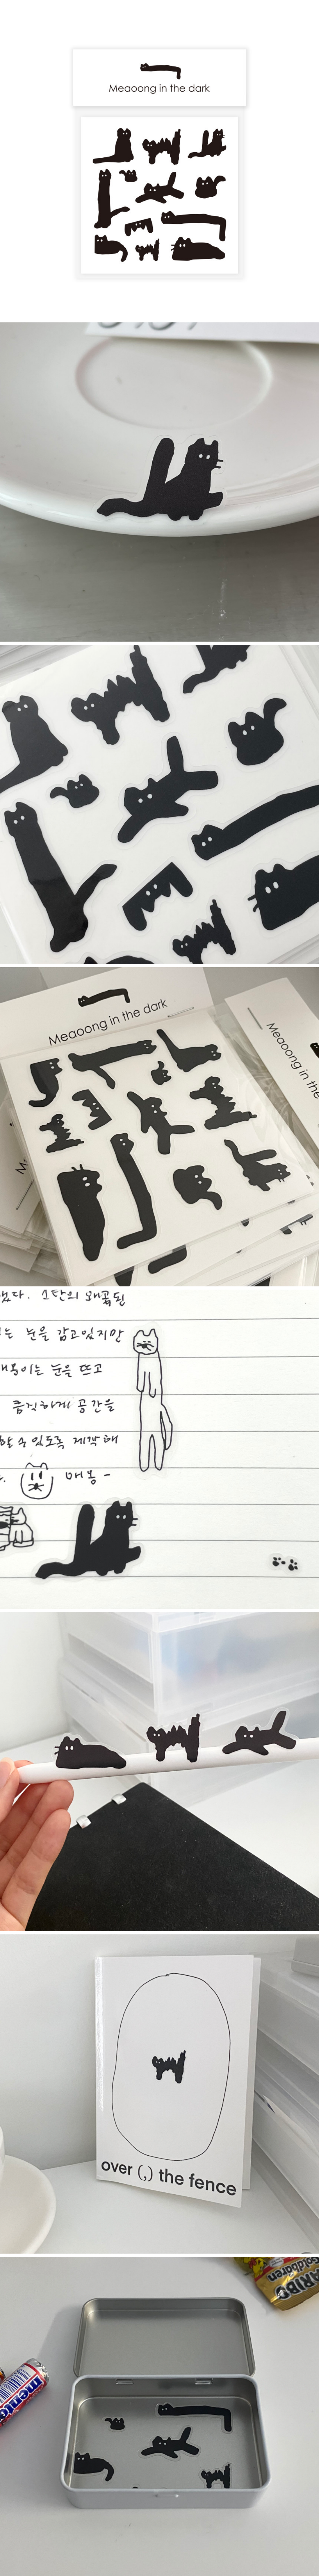 Meaoong in the dark
Meaoong in the dark
Meaoong in the
했다. 스탄의 왜곡된
는 눈을 감고있지만
매봉이는 눈을 뜨고
큼직하게 공간을
할 수 있도록 제작해
매봉-
over (,) the fence
HARIBO
Goldbären
mentos